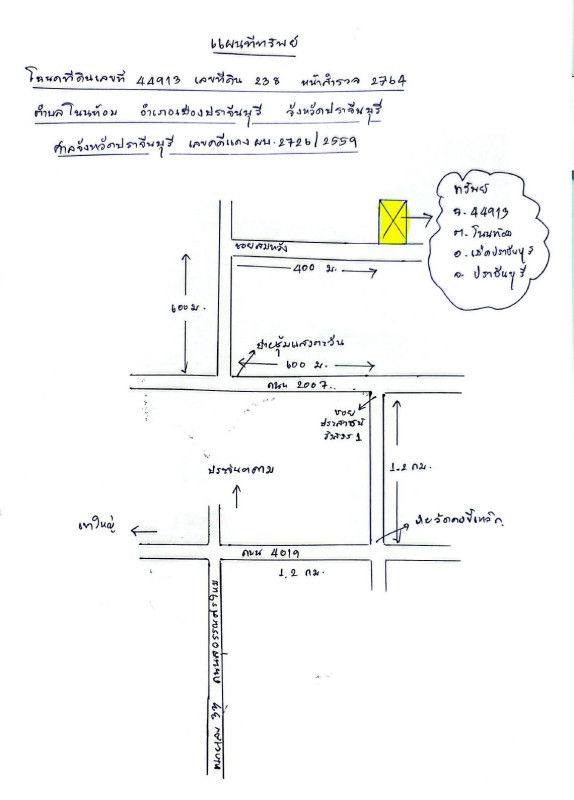 แผนที่ทรัพย์
โฉนดที่ดินเลขที่ 44913 เลขที่ดิน 238 หน้าสำรวจ 2764
ตำบลโนนห้อม อำเภอเมืองปราจีนบุรี จังหวัดปราจีนบุรี
ศาลจังหวัดปราจีนบุรี เลขคดีแดง ผบ.2726/2559
ทรัพย์
ฉ. 44913
ต. โนนห้อม
อ. เมืองปราจีนบุรี
จ. ปราจีนบุรี
ซอยสมหวัง
400 ม.
600 ม.
600 ม.
ถนน 2007
ซอย
1.2 กม.
ประจันตคาม
เขาใหญ่
ถนน 4019
1.2 กม.
ถนนสุวรรณศร
หมายเลข 33